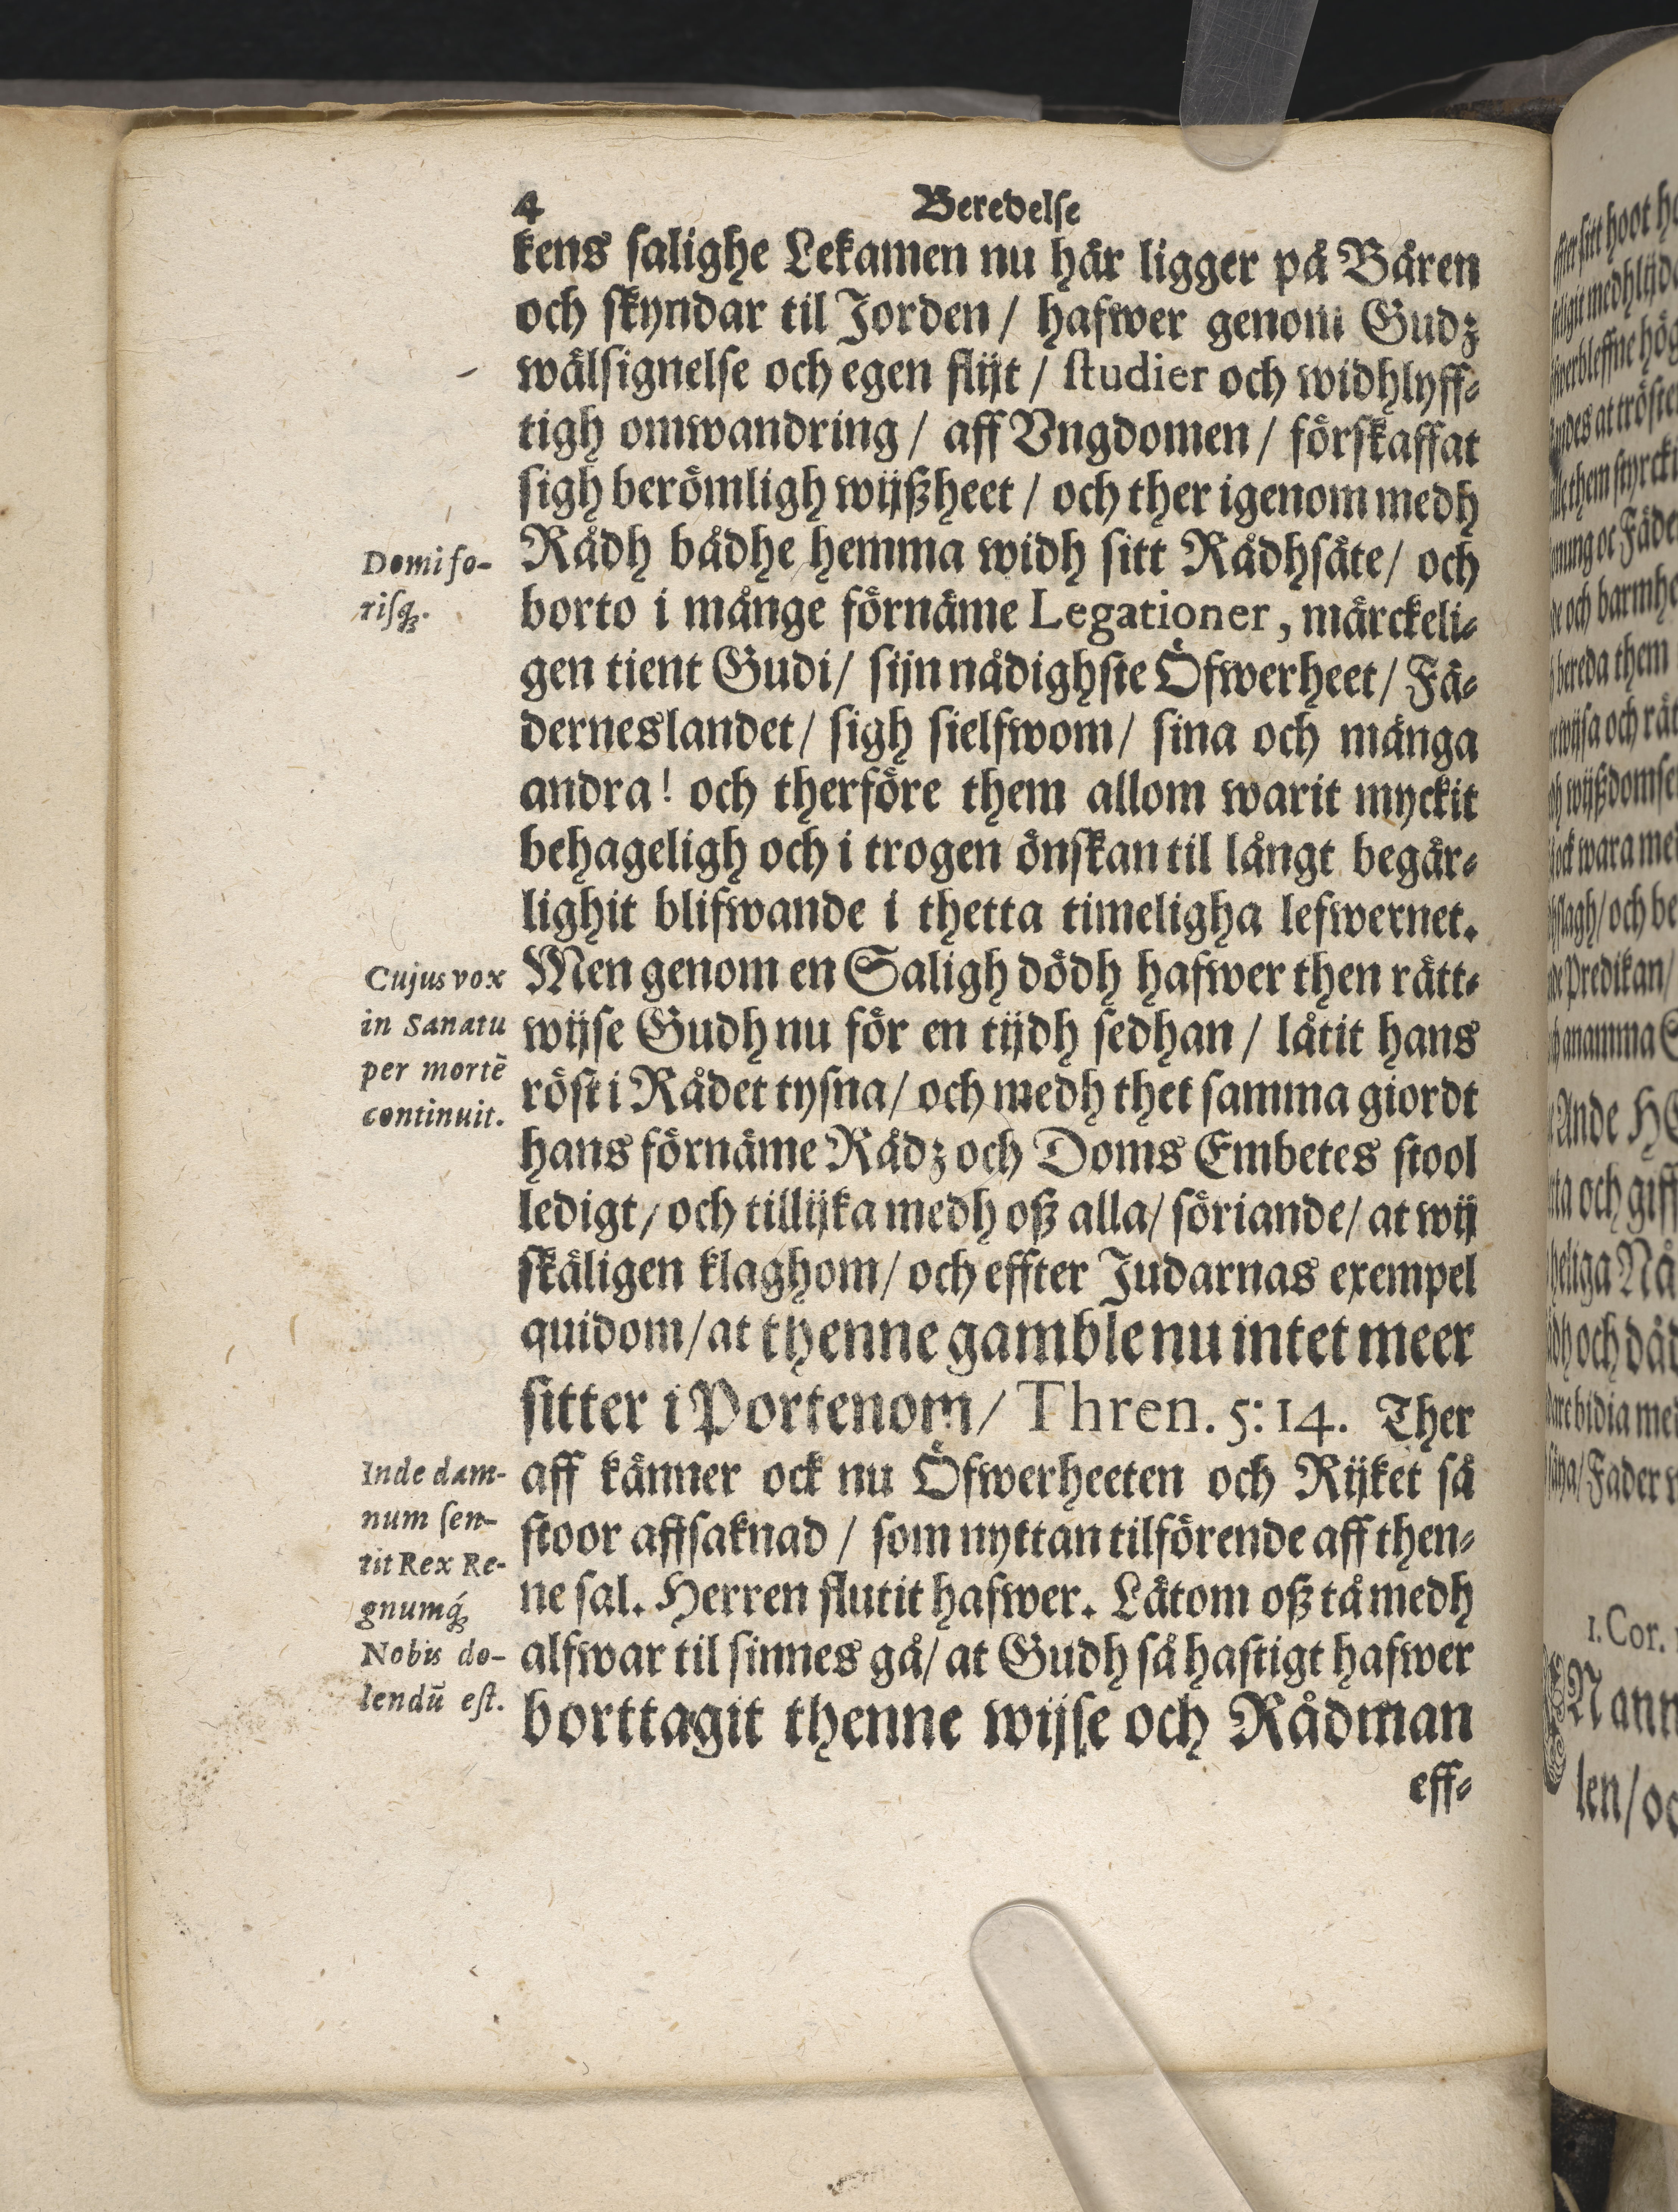 4 Beredelse
kens salighe Lekamen nu här ligger på Båren
och skyndar til Jorden / hafwer genom Gudz
wälsignelse och egen flijt / studier och widhlyff-
tigh omwandring / aff Vngdomen / förskaffat
sigh berömligh wijßheet / och ther igenom medh
Rådh bådhe hemma widh sitt Rådhsäte / och
borto i månge förnäme Legationer, märckeli-
gen tient Gudi / sijn nådighste Öfwerheet / Fä-
derneslandet / sigh sielfwom / sina och många
andra! och therföre them allom warit myckit
behageligh och i trogen önskan til långt begär-
lighit blifwande i thetta timeligha lefwernet.
Men genom en Saligh dödh hafwer then rätt-
wijse Gudh nu för en tijdh sedhan / låtit hans
röst i Rådet tysna / och medh thet samma giordt
hans förnäme Rådz och Doms Embetes stool
ledigt / och tillijka medh oß alla / söriande / at wij
skäligen klaghom / och effter Judarnas exempel
quidom / at thenne gamble nu intet meer
sitter i Portenom / Thren. 5: 14. Ther
aff känner ock nu Öfwerheeten och Rijket så
stoor affsaknad / som nyttan tilförende aff then-
ne sal. Herren flutit hafwer. Låtom oß tå medh
alfwar til sinnes gå / at Gudh så hastigt hafwer
borttagit thenne wijse och Rådman
eff-
Domi fo-
risq́;.
Cujus vox
in Sanatu
per mortē
continuit.
Inde dam-
num sen-
tit Rex Re-
gnumq́;
Nobis do-
lendū est.
1. Cor.